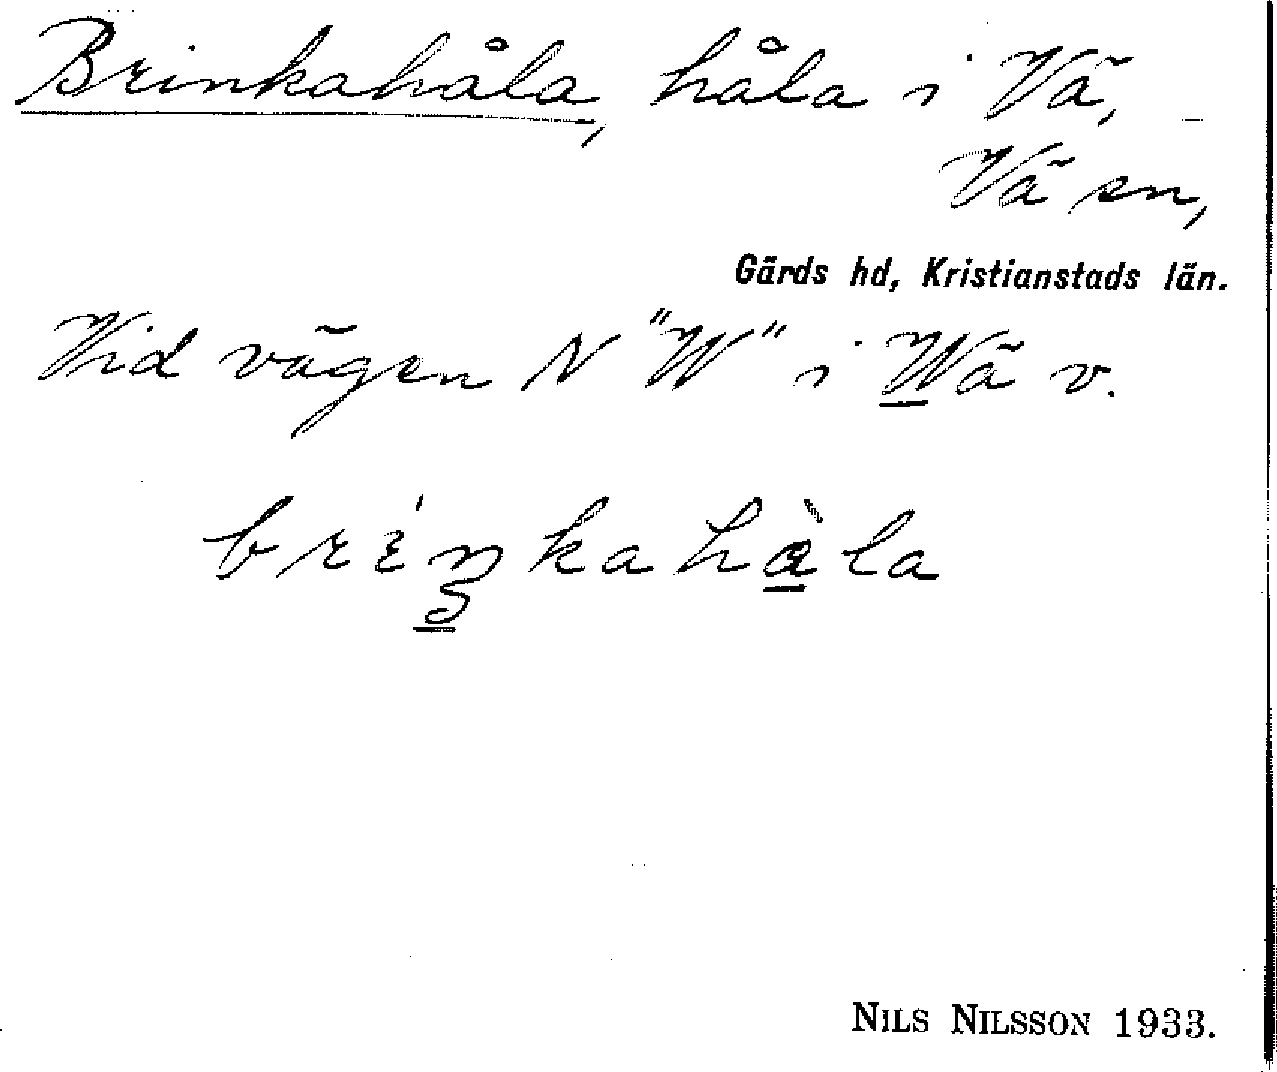 Brinkahåla, håla i Vä,
Vä sn,
Gärds hd, Kristianstads län.
Vid vägen N "W" i Wä v.
bríŋkahàla
NILS NILSSON 1933.